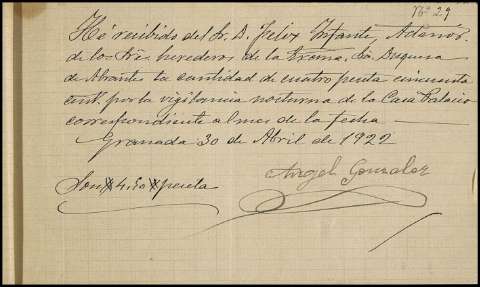 Nº 29
He recibido del Sr. D. Felix Infante, Admór.
de los Sres herederos de la Excma. Sra Duquesa
de Abrantes la cantidad de cuatro peseta cincuenta
cent. por la vigilancia nocturna de la Casa Palacio
correspondiente al mes de la fecha
Granada 30 de Abril de 1922
Angel Gonzalez
Son # 4,50 # peseta